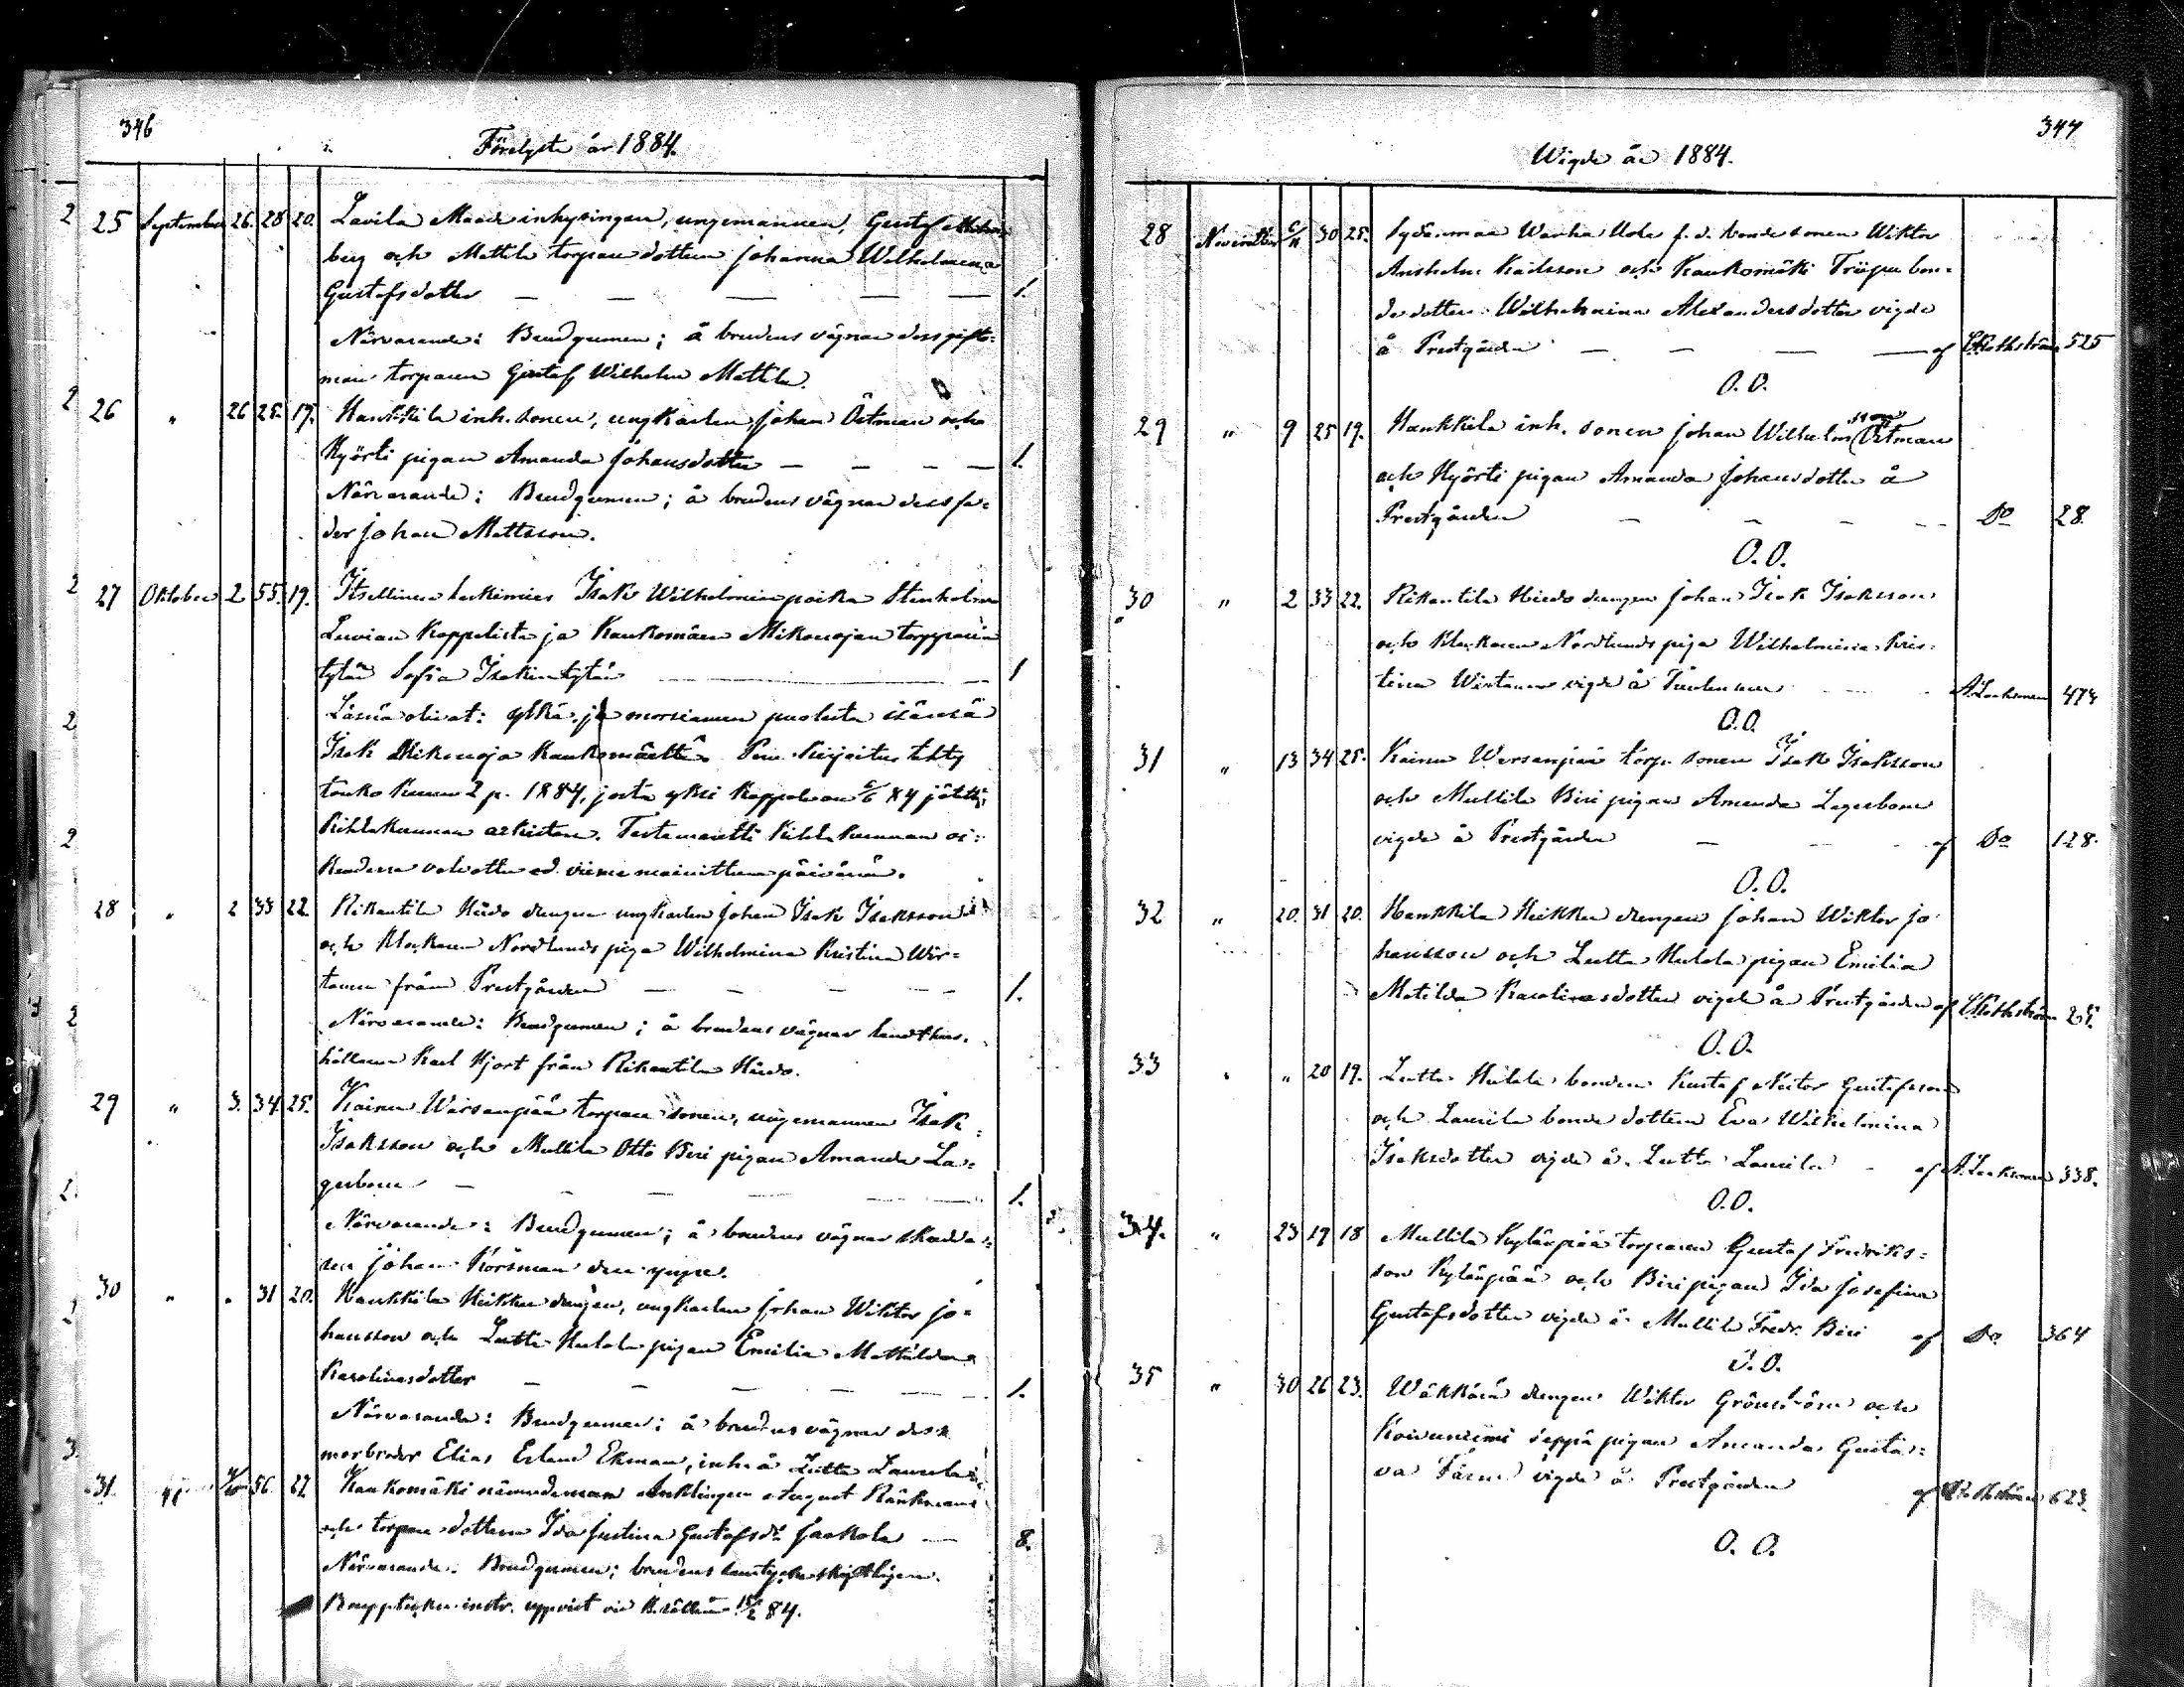 346
Förelyste år 1884.
25 September 26. 28 20. Lavila Maade inhysingen, ungemannen, Gustaf
berg och Mattila torpare dottern Johanna Wilhelmina
Gustafsdotter — — — — — 1.
Närvarande: Brudgumen; å brudens vägnar dess gifto=
man torparen Gustaf Wilhelm Mattila.
26 " 26 25. 19. Hankkila inh. sonen, ungkarlen Johan Östman och
Hyörti pigan Amanda Johansdotter — — — — 1.
Närvarande: Brudgumen; å brudens vägnar dess fa=
der Johan Mattsson.
27 Oktober 2 55. 19. Itsellinen leskimies Isak Wilhelminpoika Stenholm
Luvian Kappelista ja Kaukomäen Mikonojan torpparin
tytär Sofia Isakintytär — 1
Läsnä olivat: ylkä ja morsiamen puolesta isänsä
Isak Mikonoja Kaukomäeltä. Perukirjoitus tehty
touko kuun 2 p. 1884, josta yksi kappale on 84 jätetty
Kihlakunnan arkistoon. Testamentti Kihlakunnan oi=
keudessa valvottu ed. viime mainittuna päivänä.
28 " 2 33 22. Rikantila Hiido drengen ungkarlen Johan Isak Isaksson
och Klockaren Nordlunds piga Wilhelmina Kristina Wir=
tanen från Prestgården — — — — 1.
Närvarande: Brudgumen; å brudens vägnar landthus=
hållaren Karl Hjort från Rikantila Hiido.
29 " 3. 34. 25. Kainu Warsanpää torpare sonen, ungemannen Isak
Isaksson och Mullila Otto Biri pigan Amanda La=
gerbom — — — — 1.
Närvarande: Brudgumen; å brudens vägnar skädda=
ren Johan Korsman den yngre.
30 " " 31 20. Hankkila Heikku drengen, ungkarlen Johan Wiktor Jo=
hansson och Lutta Hulola pigan Emilia Mathilda
Karolinasdotter — — — — — 1.
Närvarande: Brudgumen; å brudens vägnar dess
morbroder Elias Erland Ekman, inh. å Lutta Laurila.
31. 56. 22 Kaukomäki nämndeman enklingen August Ränkman
och torpare dottern Ida Justina Gustafsdr Jaakola — 8.
Närvarande: Brudgumen; brudens samtycke skriftligen.
Bouppteckn. instr. uppvist vid H.rätten 84.
347
Wigde år 1884.
28 November 30 25. Sydänmaa Wanha Uola f. d. bonde sonen Wiktor
Anshelm Karlsson och Kaukomäki Triipu bon=
de dottern Wilhelmina Alexandersdotter vigde
å Prestgården — — — — af Rothström 525
O. O.
29 " 9 25 19. Hankkila inh. sonen Johan Wilhelm Östman
och Hyörti pigan Amanda Johansdotter å
Prestgården — — — — Do 28.
O. O.
30 " 2 33 22. Rikantila Hiido drengen Johan Isak Isaksson
och Klockaren Nordlunds piga Wilhelmina Kris=
tina Wirtanen vigde å A. Laaksonen 474
O. O.
31 " 13 34 25. Kainu Warsanpää torp. sonen Isak Isaksson
och Mullila Biri pigan Amanda Lagerbom
vigde å Prestgården — — af Do 128.
O. O.
32 " 20. 31 20. Hankkila Heikku drengen Johan Wiktor Jo=
hansson och Lutta Hulola pigan Emilia
Matilda Karolinasdotter vigde å Prestgården af Rothström 25.
O. O.
33 " " 20 19. Lutta Hulola bonden Kustaf Nestor Gustafsson
och Laurila bonde dottern Eva Wilhelmina
Isaksdotter vigde å Lutta Laurila — af A. Laaksonen 338.
O. O.
34. " 23 19 18 Mullila Kylänpää torparen Gustaf Fredriks=
son Kylänpää och Biri pigan Ida Josefina
Gustafsdotter vigde å Mullila Fredr. Biri af Do 364
O. O.
35 " 30 26 23. Wäkkärä drengen Wiktor Grönström och
Koivuniemi Seppä pigan Amanda Gusta=
va vigde å Prestgården af Rothström 623.
O. O.